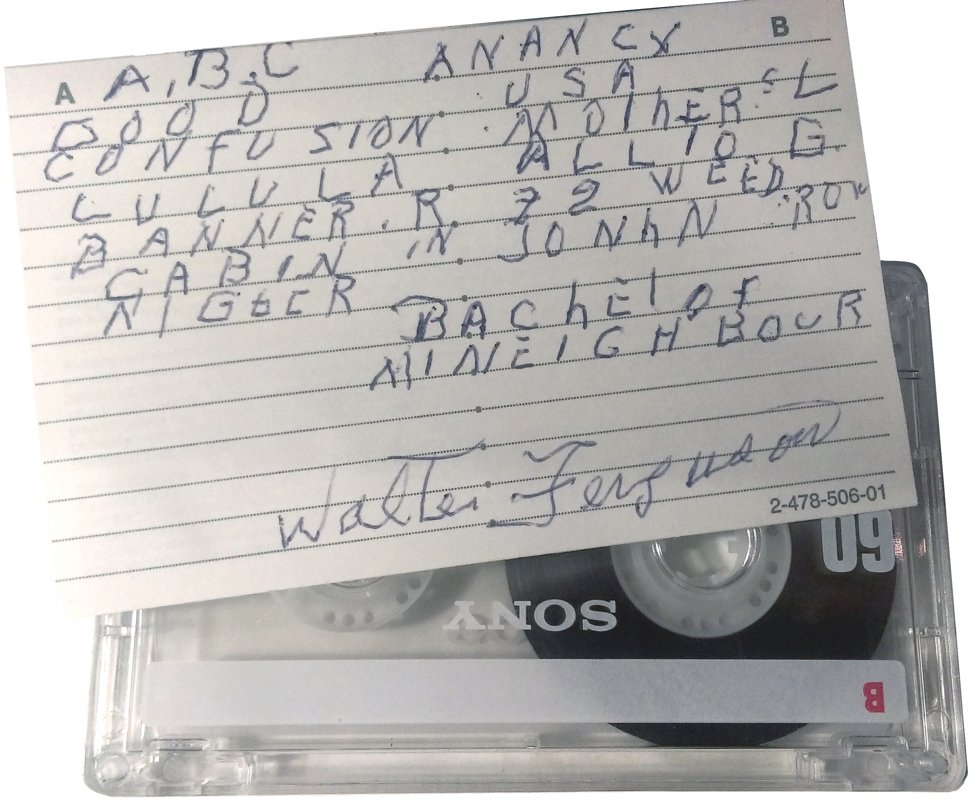 A
A, B, C
GOOD
CONFUSION
LULULA
BANNER.R.
CABIN IN
NIGEER
B
ANANCY
USA
WEED.
JONHN ROW
BACHElOf
MINEIGHBOUR
Walter Ferguson
2-478-506-01
60
SONY
B